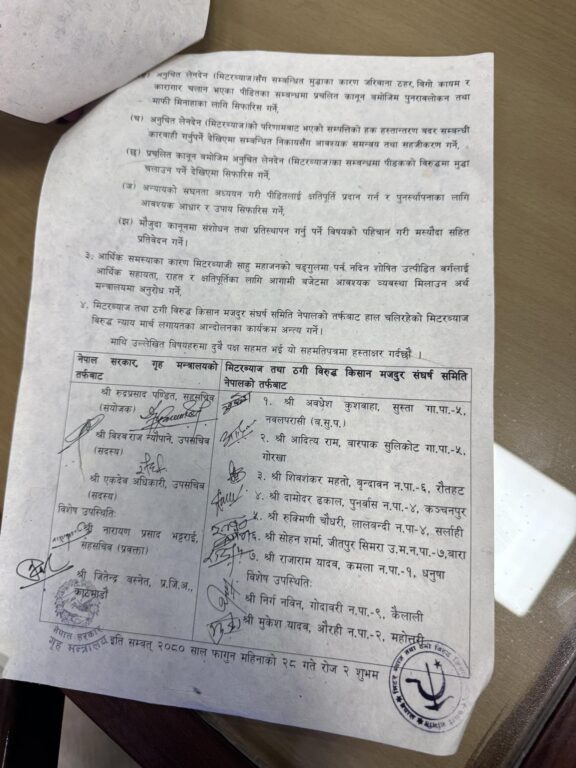 अनुचित लेनदेन (मिटरब्याज)सँग सम्बन्धित मुद्दाका कारण जरिवाना ठहर, बिगो कायम र
कारागार चलान भएका पीडितका सम्बन्धमा प्रचलित कानून बमोजिम पुनरावलोकन तथा
माफी मिनाहाका लागि सिफारिस गर्ने,
(च) अनुचित लेनदेन (मिटरब्याज)को परिणामबाट भएको सम्पत्तिको हक हस्तान्तरण बदर सम्बन्धी
कारवाही गर्नुपर्ने देखिएमा सम्बन्धित निकायसँग आवश्यक समन्वय तथा सहजीकरण गर्ने,
(छ) प्रचलित कानून बमोजिम अनुचित लेनदेन (मिटरब्याज)का सम्बन्धमा पीडकको विरुद्धमा मुद्दा
चलाउन पर्ने देखिएमा सिफारिस गर्ने,
(ज) अन्यायको सघनता अध्ययन गरी पीडितलाई क्षतिपूर्ति प्रदान गर्न र पुनर्स्थापनाका लागि
आवश्यक आधार र उपाय सिफारिस गर्ने,
(झ) मौजुदा कानूनमा संशोधन तथा प्रतिस्थापन गर्नु पर्ने विषयको पहिचान गरी मस्यौदा सहित
प्रतिवेदन गर्ने।
३. आर्थिक समस्याका कारण मिटरब्याजी साहु महाजनको चङ्गुलमा पर्न नदिन शोषित उत्पीडित वर्गलाई
आर्थिक सहायता, राहत र क्षतिपूर्तिका लागि आगामी बजेटमा आवश्यक व्यवस्था मिलाउन अर्थ
मन्त्रालयमा अनुरोध गर्ने,
४. मिटरब्याज तथा ठगी विरुद्ध किसान मजदुर संघर्ष समिति नेपालको तर्फबाट हाल चलिरहेको मिटरब्याज
विरुद्ध न्याय मार्च लगायतका आन्दोलनका कार्यक्रम अन्त्य गर्ने।
माथि उल्लेखित विषयहरुमा दुवै पक्ष सहमत भई यो सहमतिपत्रमा हस्ताक्षर गर्दछौं ।
नेपाल सरकार, गृह मन्त्रालयको
तर्फबाट
श्री रुद्रप्रसाद पण्डित, सहसचिव
(संयोजक)
श्री विश्वराज न्यौपाने, उपसचिव
(सदस्य)
श्री एकदेव अधिकारी, उपसचिव
(सदस्य)
विशेष उपस्थिति:
श्री नारायण प्रसाद भट्टराई,
सहसचिव (प्रवक्ता)
श्री जितेन्द्र बस्नेत, प्र.जि.अ.,
काठमाडौं
मिटरब्याज तथा ठगी विरुद्ध किसान मजदुर संघर्ष समिति
नेपालको तर्फबाट
१. श्री अवधेश कुशवाहा, सुस्ता गा.पा.-५,
नवलपरासी (ब.सु.प.)
२. श्री आदित्य राम, बारपाक सुलिकोट गा.पा.-५,
गोरखा
३. श्री शिवशंकर महतो, बृन्दावन न.पा.-६, रौतहट
४. श्री दामोदर ढकाल, पुनर्वास न.पा.-४, कञ्चनपुर
५. श्री रुक्मिणी चौधरी, लालबन्दी न.पा-४, सर्लाही
६. श्री सोहन शर्मा, जीतपुर सिमरा उ.म.न.पा.-७,बारा
७. श्री राजाराम यादव, कमला न.पा.-१, धनुषा
विशेष उपस्थिति:
श्री निर्ग नविन, गोदावरी न.पा.-९, कैलाली
श्री मुकेश यादव, औरही न.पा.-२, महोत्तरी
नेपाल सरकार
गृह मन्त्रालय
इति सम्वत् २०८० साल फागुन महिनाको २८ गते रोज २ शुभम